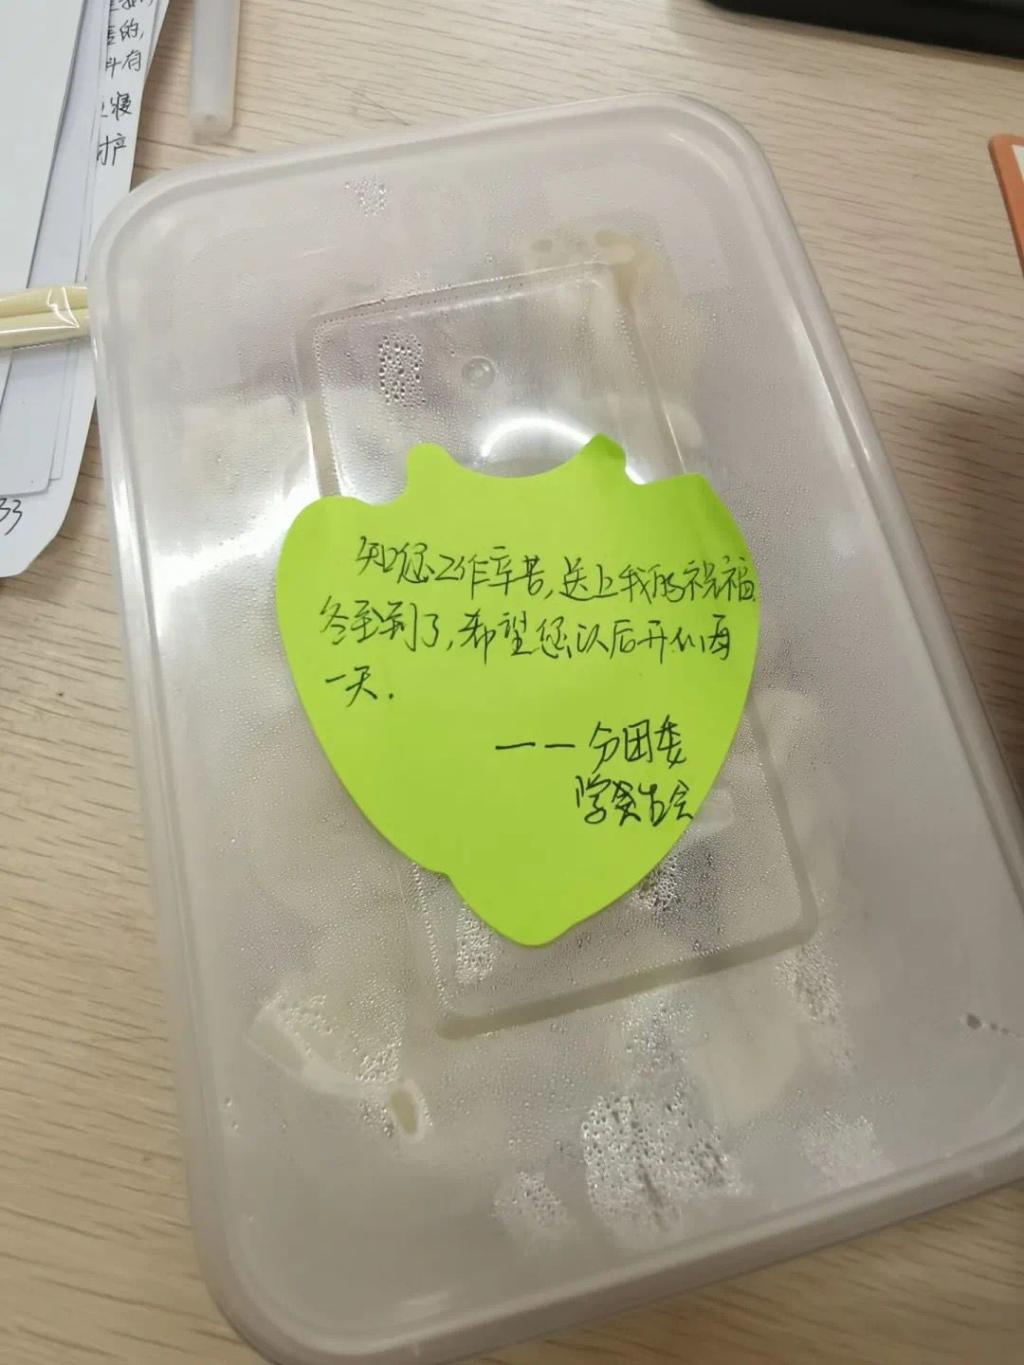 的,
有
寝
产
33
知您工作辛苦,送上我的祝福.
冬至到了,希望您以后开心每
一天.
——分团委
学生会